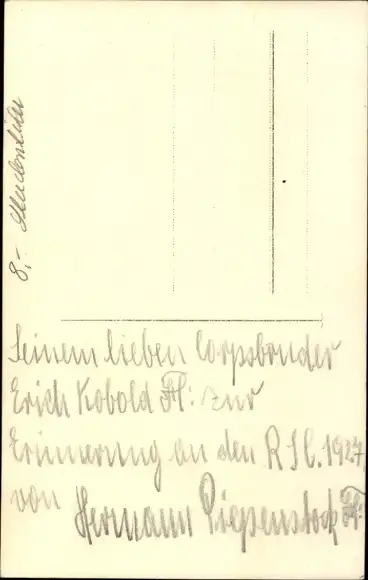 8,- Studentika
Seinem lieben Corpsbruder
Erich Kobold Fl: zur
Erinnerung an den R.S.C. 1927
von Hermann Piepenstock